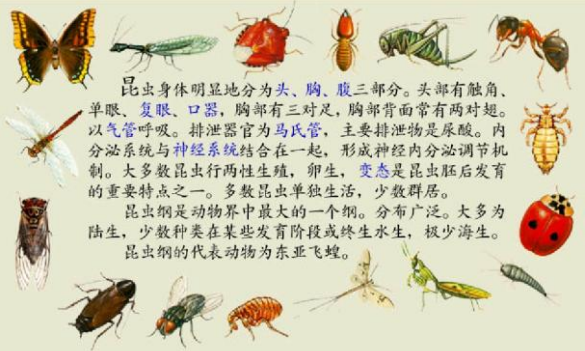 昆虫身体明显地分为头、胸、腹三部分。头部有触角、
单眼、复眼、口器，胸部有三对足，胸部背面常有两对翅。
以气管呼吸。排泄器官为马氏管，主要排泄物是尿酸。内
分泌系统与神经系统结合在一起，形成神经内分泌调节机
制。大多数昆虫行两性生殖，卵生，变态是昆虫胚后发育
的重要特点之一。多数昆虫单独生活，少数群居。
昆虫纲是动物界中最大的一个纲。分布广泛。大多为
陆生，少数种类在某些发育阶段或终生水生，极少海生。
昆虫纲的代表动物为东亚飞蝗。